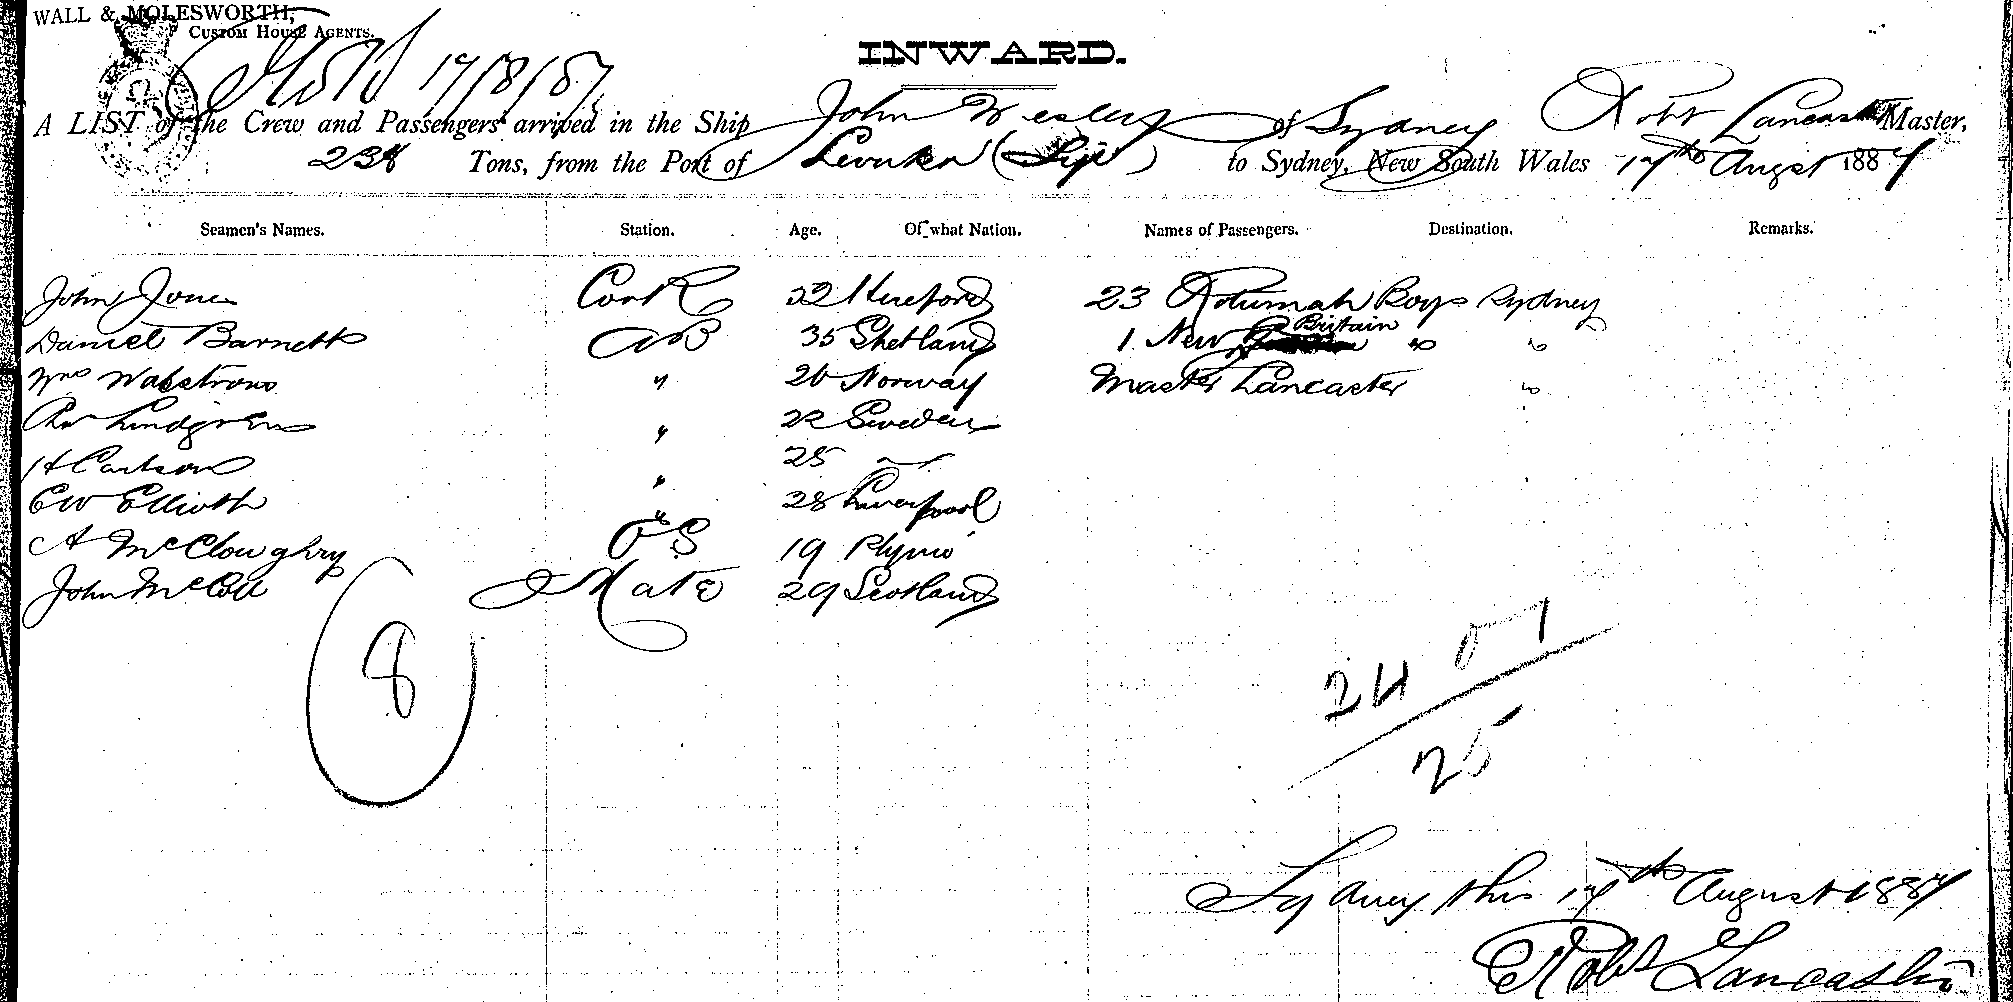 WALL & MOLESWORTH,
CUSTOM HOUSE AGENTS.
17/8/87
INWARD.
A LIST of the Crew and Passengers arrived in the Ship John Wesley of Sydney Robt Lancaster Master,
238 Tons, from the Port of Levuka (Fiji) to Sydney, New South Wales 17th Augst 1887
Seamen's Names. Station. Age. Of what Nation. Names of Passengers. Destination. Remarks.
John Jones Cook 22 Hereford 23 Rotumah Boys Sydney
Daniel Barnett AB 35 Shetland 1 New Britain " "
Wm Walstrom " 26 Norway Master Lancaster "
Lindgren " 22 Sweden
H Carlson " 25 "
CW Elliott " 28 Liverpool
A McCloughry OS 19 Plymo
John McColl Mate 29 Scotland
8
24 1
25
Sydney this 17th August 1887
Robt Lancaster